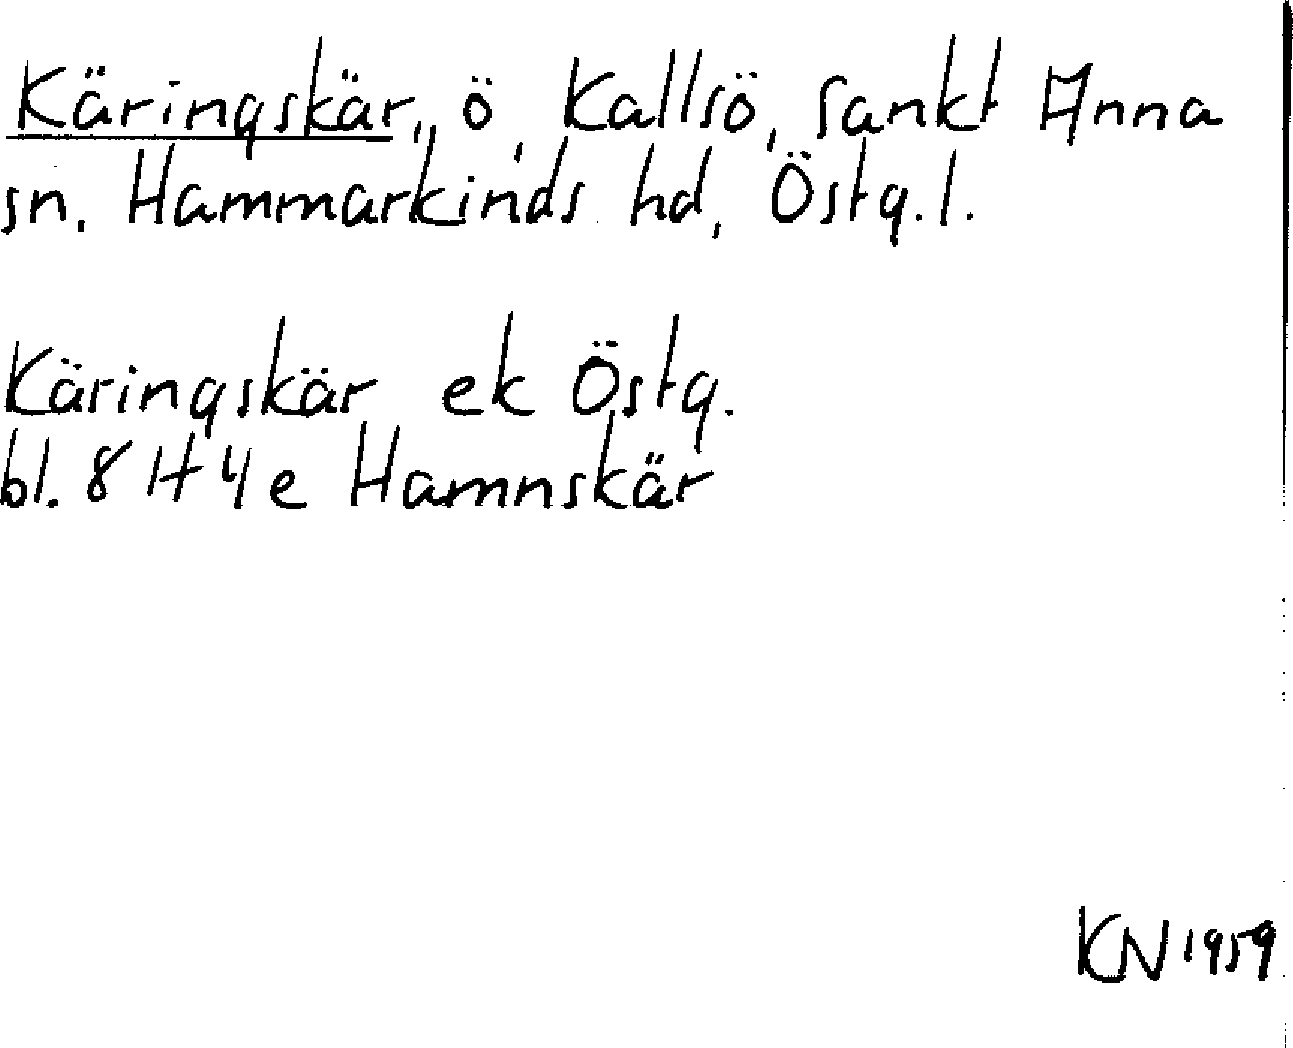 Käringskär, ö, Kallsö, Sankt Anna
sn. Hammarkinds hd, Östg.l.
Käringskär ek Östg.
bl. 8 H 4 e Hamnskär
KN 1959